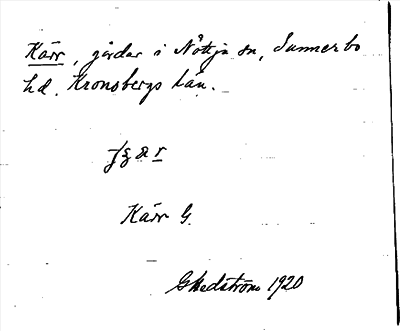 Kärr, gårdar i Nöttja sn, Sunnerbo
hd. Kronobergs län.
Kärr G.
G Hedström 1920